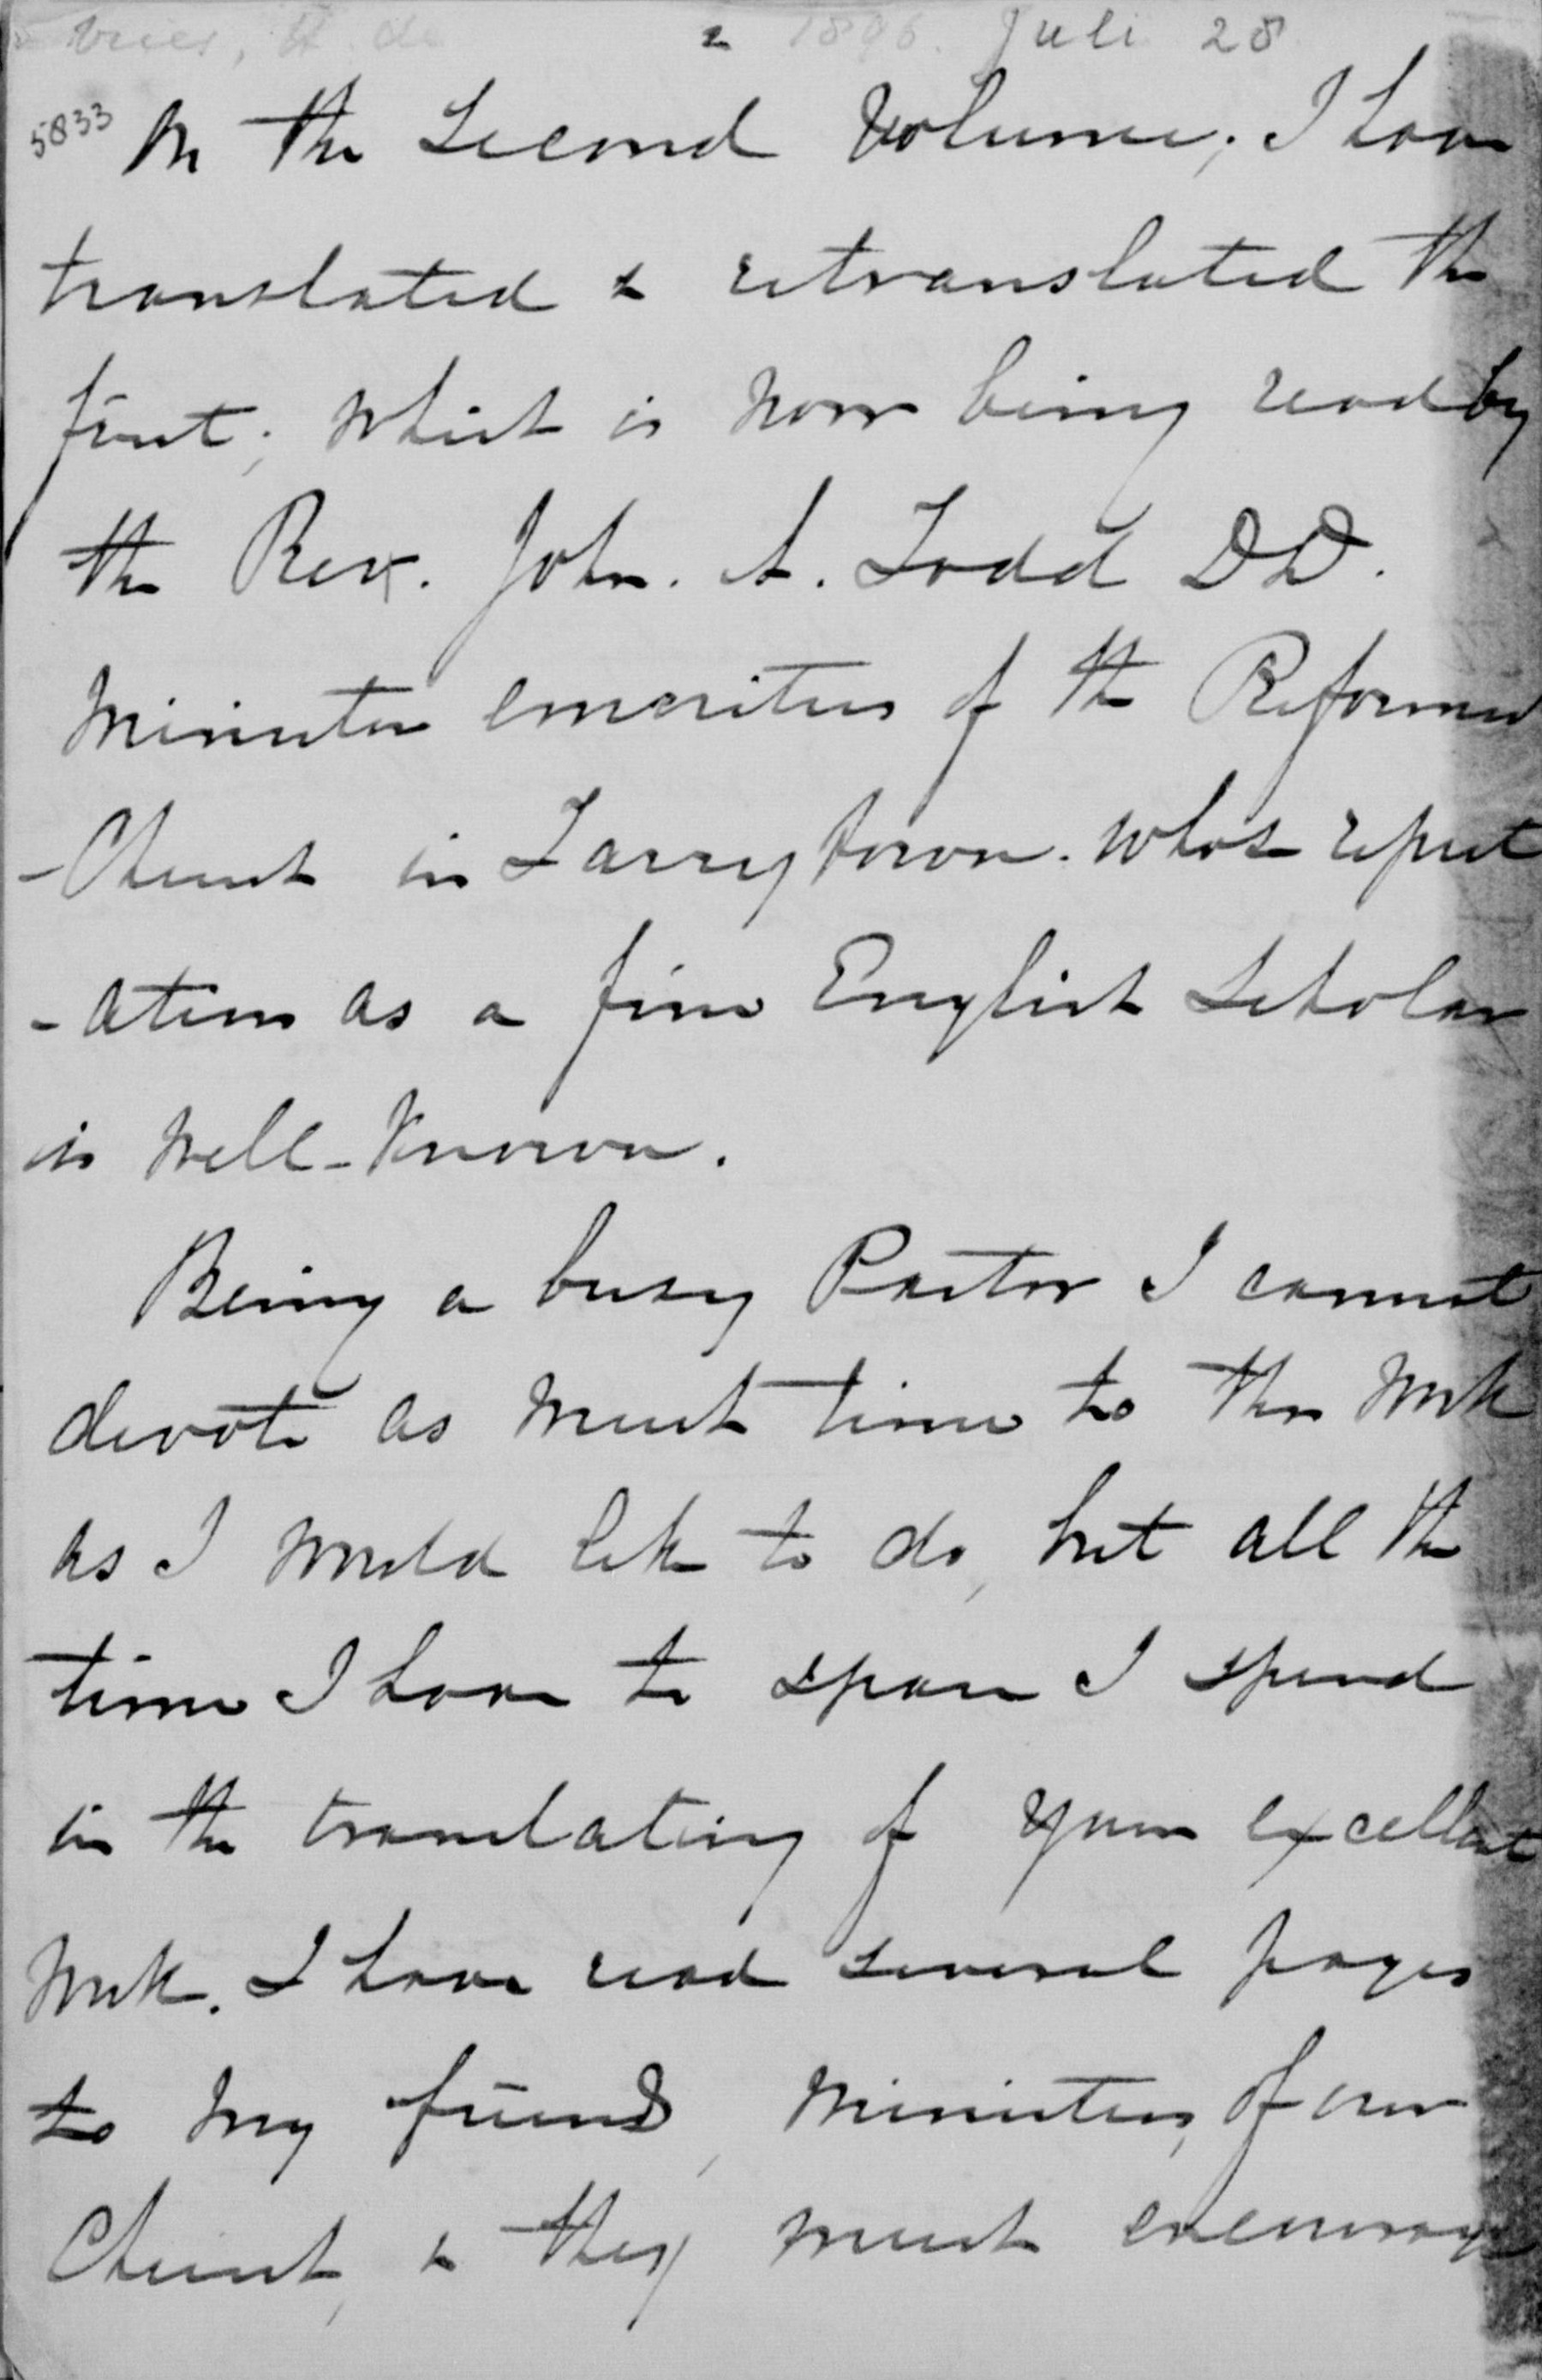 Vries, H de 2 1896. Juli 28
5833 in the second volume; I have
translated & retranslated the
first; which is now being read by
the Rev. John. A. Todd DD.
Minister emeritus of the Reformed
-Church in Tarrytown. whose reput
-ation as a fine English Scholar
is well-known.
Being a busy Pastor I cannot
devote as much time to the work
as I would like to do, but all the
time I have to spare I spend
in the translating of your excellent
work. I have read several pages
to my friends, ministers, of our
Church, & they much encourage